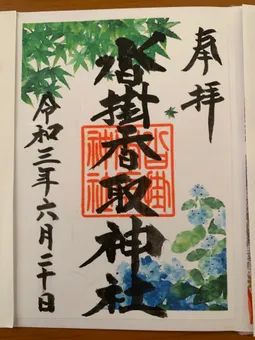 奉拝
沓掛香取神社
沓掛香取神社
令和三年六月二十日